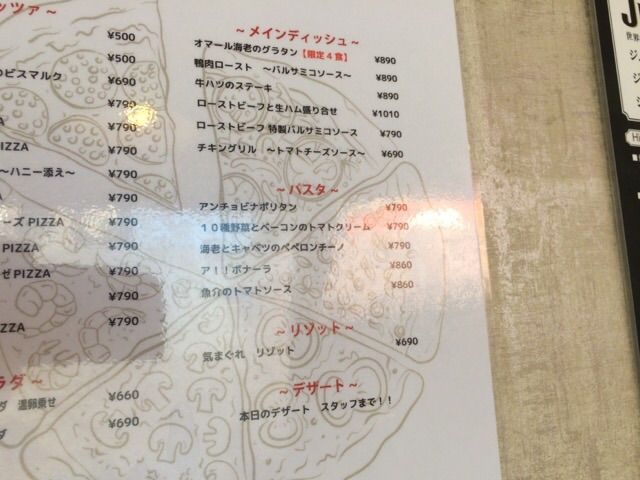 ッツァ ～
¥500
¥500
のビスマルク
¥690
¥790
¥790
PIZZA
¥790
～ハニー添え～
¥790
¥790
ーズ PIZZA
¥790
PIZZA
¥790
ゼPIZZA
¥790
¥790
ZZA
ラダ ～
¥660
ダ 温卵乗せ
¥690
ダ
～ メインディッシュ ～
オマール海老のグラタン【限定４食】 ¥890
鴨肉ロースト ～バルサミコソース～ ¥890
牛ハツのステーキ ¥890
ローストビーフと生ハム盛り合せ ¥1010
ローストビーフ 特製バルサミコソース ¥790
チキングリル ～トマトチーズソース～ ¥690
～ パスタ ～
アンチョビナポリタン ¥790
１０種野菜とベーコンのトマトクリーム ¥790
海老とキャベツのペペロンチーノ ¥790
ア！！ボナーラ ¥860
魚介のトマトソース ¥860
～ リゾット ～
気まぐれ リゾット ¥690
～ デザート ～
本日のデザート スタッフまで！！
世界